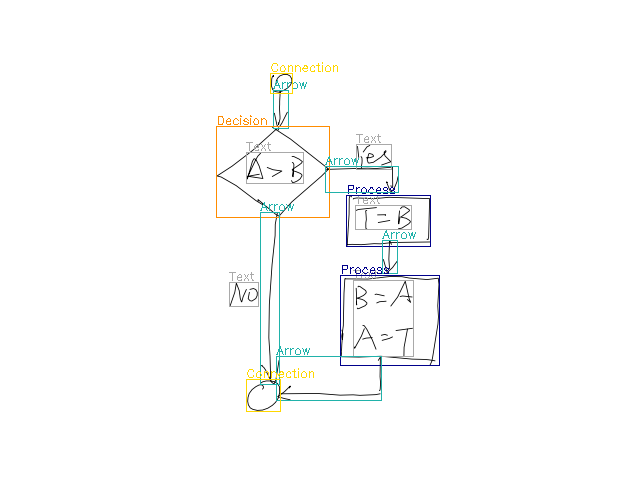 Connection
Arrow
Decision
Text
A > B
Text
Yes
Arrow
Process
Text
T = B
Arrow
Arrow
Process
Text
NO
B = A
A = T
Arrow
Connection